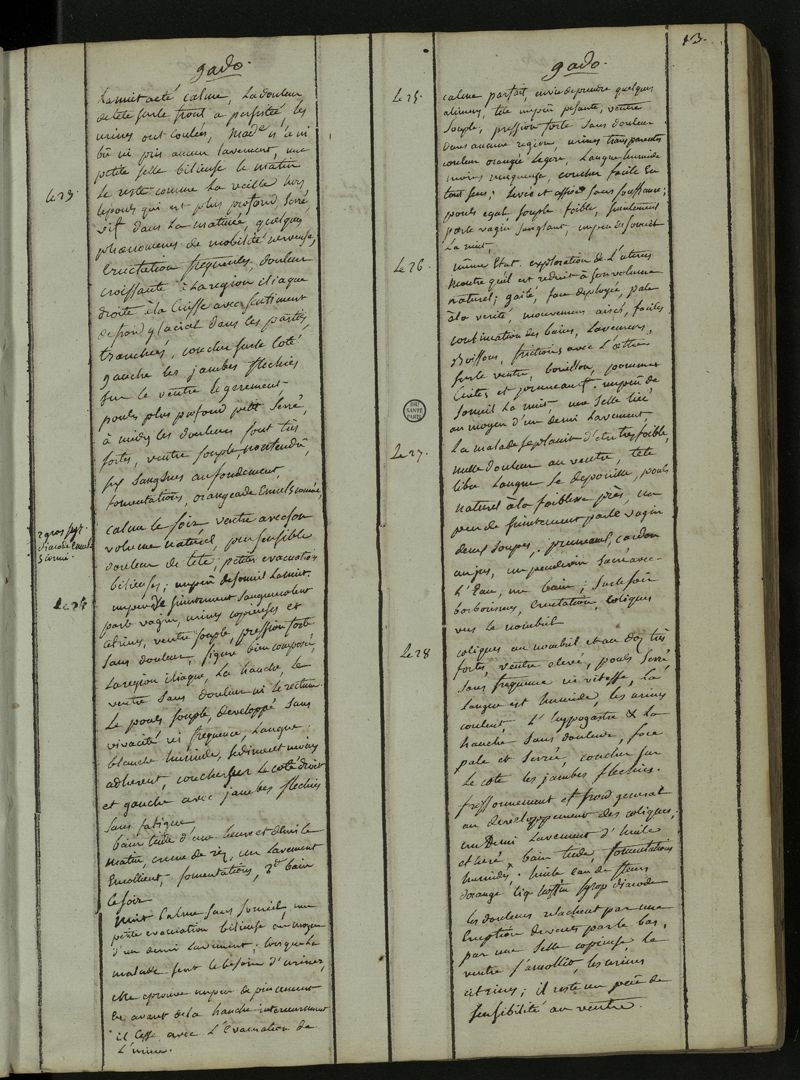 13.
gado.
La nuit a eté calme, La douleur
de tête sur le front a persisté, les
urines ont coulées, Made n'a ni
bu ni pris aucun lavement, une
petite selle bilieuse le matin
Le 23. Le reste comme La veille hors
le pouls qui est plus profond, serré,
vif dans La matinée, quelques
phænomenes de mobilité nerveuse,
Eructation frequentes, douleur
croissante à La region iliaque
droite à la Cuisse avec sentiment
de froid glacial dans les parties,
tranchées, coucher sur le coté
gauche les jambes flechies
sur le ventre legerement.
pouls plus profond petit serré,
à midy les douleurs sont très
fortes, ventre souple, non tendu,
six sangsues au fondement,
fomentations, orangeade
2 gros
calme le soir, ventre avec son
volume naturel, peu sensible
douleur de tête, petites evacuations
bilieuses; un peu de someil La nuit.
Le 24. un peu de suintement sanguinolent
par le vagin, urines copieuses et
citrines, ventre souple, pression forte
sans douleur, figure bien composée,
La region iliaque, La hanche, le
ventre sans douleur ni le rectum
Le pouls souple, developpé sans
vivacité ni frequence, Langue
blanche humide, sediment moins
adherent, coucher sur le coté droit
et gauche avec jambes flechies
sans fatigue
bain tiede d'une heure et demie le
matin, creme de riz, un Lavement
Emollient, fomentations, 2e bain
le soir
Nuit Calme sans someil, une
petite evacuation bilieuse au moyen
d'un demi Lavement; lorsque la
malade sent le besoin d'uriner,
elle eprouve un peu de pincement
En avant de la hanche interieurement
il cesse avec L'Evacuation de
L'urine.
gado.
Le 25. calme parfait, envie de prendre quelques
alimens, tête un peu pesante, ventre
souple, pression forte sans douleur
dans aucune region, urines transparentes
couleur orangée legere, Langue humide
moins muqueuse, coucher facile En
tout sens; Levée et assise sans souffrance;
pouls egal, souple, foible, suintement
par le vagin sanglant, un peu de someil
La nuit.
Le 26. même Etat, exploration de L'uterus
montre qu'il est reduit à son volume
naturel; gaité, face deployée, pale
à la verité, mouvemens aisés, faciles
continuation des bains, Lavemens,
Boissons, frictions avec L'æther
sur le ventre, bouillon, pommes
Cuites et pruneaux. un peu de
someil La nuit, une selle liée
au moyen d'un demi Lavement
Le 27. La malade se plaint d'être très foible,
nulle douleur au ventre, tête
libre Langue se depouille, pouls
naturel à la foiblesse près, un
peu de suintement par le vagin
deux soupes, pruneaux, cardon
au jus, un peu de vin sucré avec
L'Eau, un bain; sur le soir
borborismes, Eructation, coliques
vers le nombril
Le 28 coliques au nombril et au dos très
fortes, ventre elevé, pouls serré
sans frequence ni vitesse, La
Langue est humide, les urines
coulent, L'hypogastre & La
hanche sans douleur, face
pale et serrée, coucher sur
Le coté les jambes flechies.
frissonnement et froid general
au developpement des coliques;
un Demi Lavement d'huile
bain tiede, fomentations
humides. huile eau de fleurs
d'orange liq hoffm syrop diacode
les douleurs relachent par une
Eruption de vents par le bas,
par une selle copieuse, le
ventre s'amollit, les urines
citrines; il reste un peu de
sensibilité au ventre.
BIU
SANTÉ
PARIS